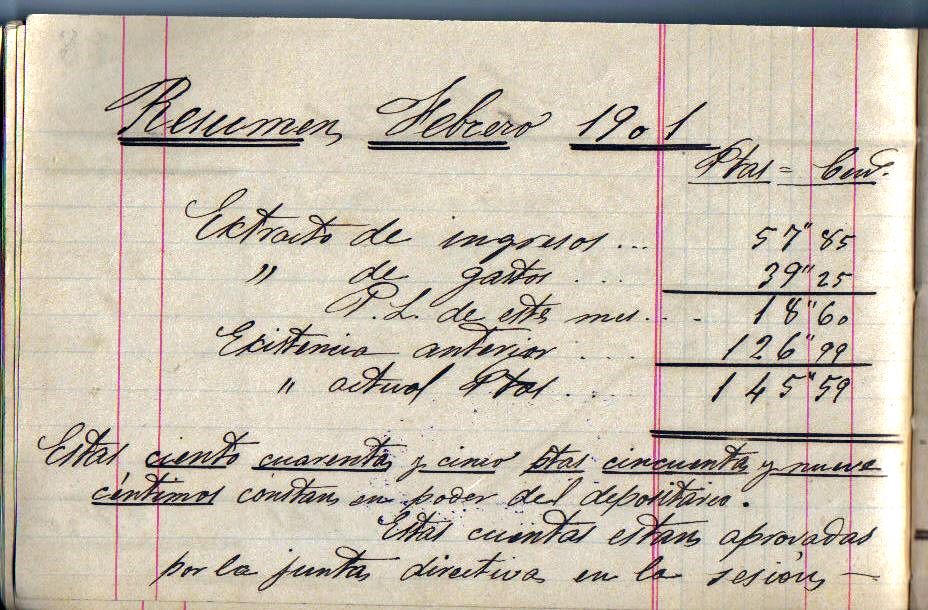 Resumen Febrero 1901
Ptas = Cent.
Extracto de ingresos ... 57" 85
" de gastos .... 39" 25
P. L. de este mes ... 18" 60
Existencia anterior .... 126" 99
" actual Ptas ... 145" 59
Estas ciento cuarenta y cinco ptas cincuenta y nueve
céntimos constan en poder del depositario.
Estas cuentas estan aprovadas
por la junta directiva en la sesión —